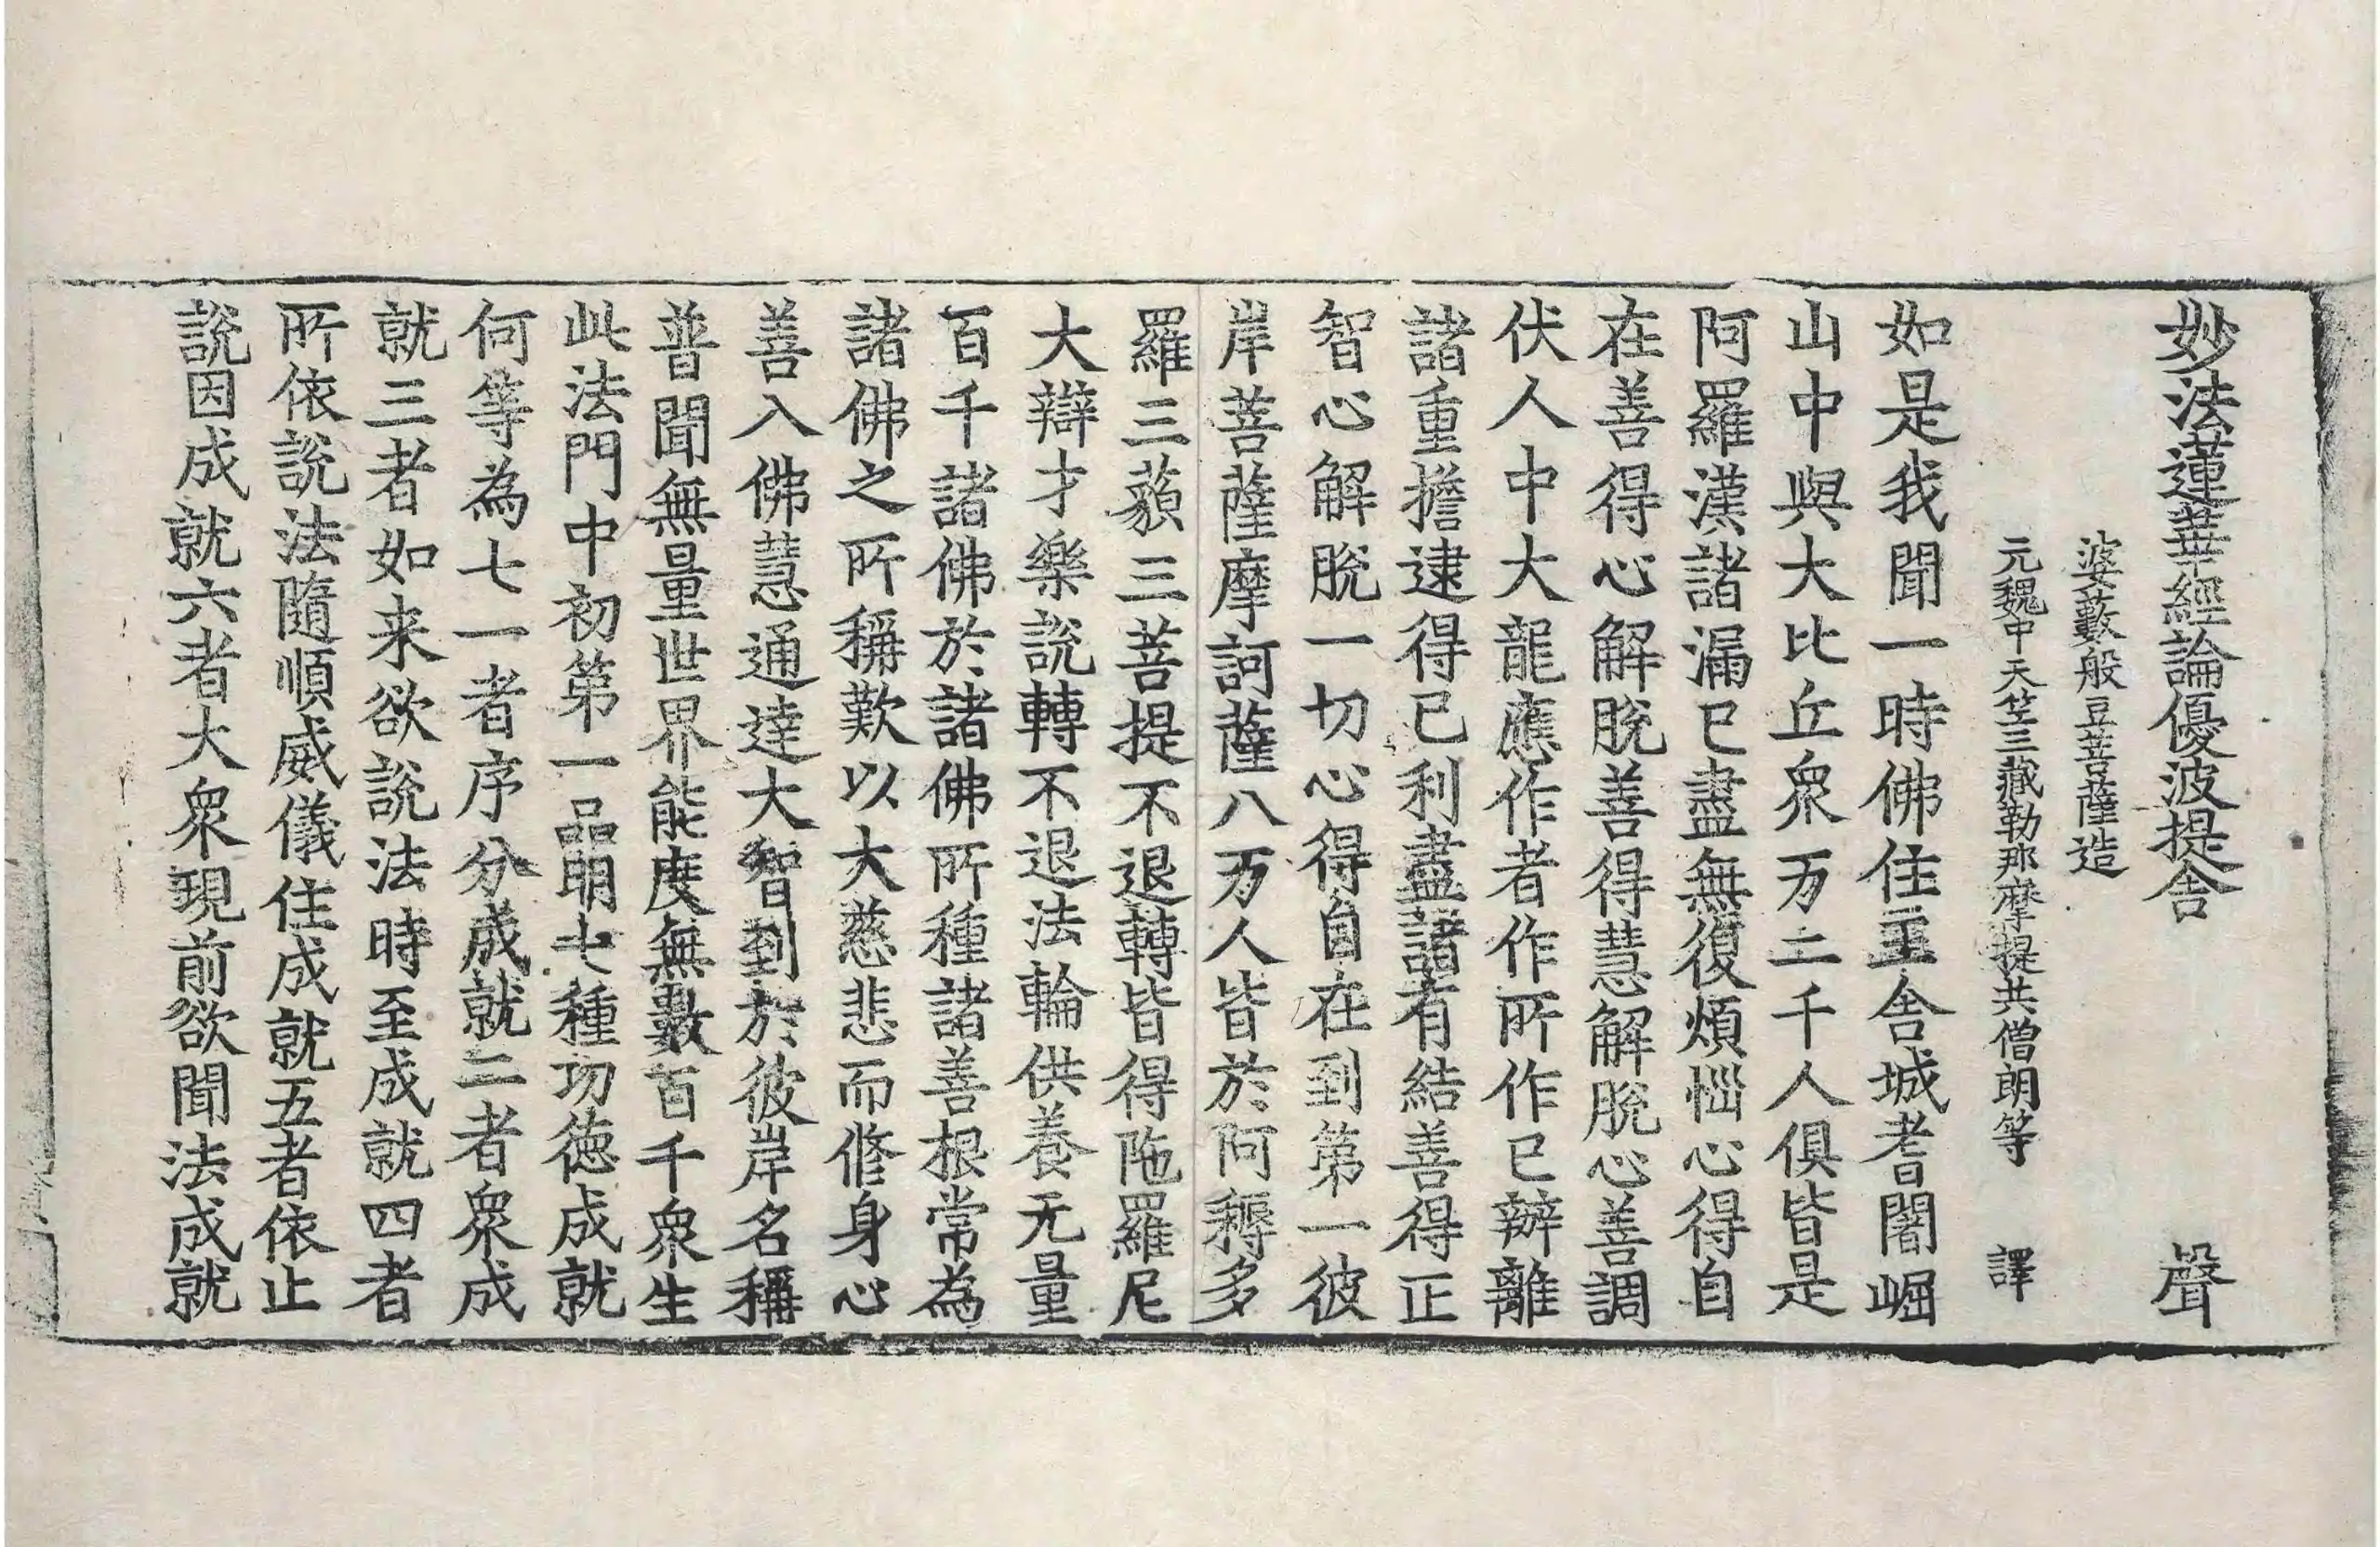 妙法蓮華經論優波提舍 聲
婆藪般豆菩薩造
元魏中天竺三藏勒那摩提共僧朗等 譯
如是我聞一時佛住王舍城耆闍崛
山中與大比丘衆万二千人俱皆是
阿羅漢諸漏已盡無復煩惱心得自
在善得心解脫善得慧解脫心善調
伏人中大龍應作者作所作已辦離
諸重擔逮得已利盡諸有結善得正
智心解脫一切心得自在到第一彼
岸菩薩摩訶薩八万人皆於阿耨多
羅三藐三菩提不退轉皆得陁羅尼
大辯才樂說轉不退法輪供養无量
百千諸佛於諸佛所種諸善根常為
諸佛之所稱歎以大慈悲而修身心
善入佛慧通達大智到於彼岸名稱
普聞無量世界能度無數百千衆生
此法門中初第一品明七種功德成就
何等為七一者序分成就二者衆成
就三者如来欲說法時至成就四者
所依說法隨順威儀住成就五者依止
說因成就六者大衆現前欲聞法成就